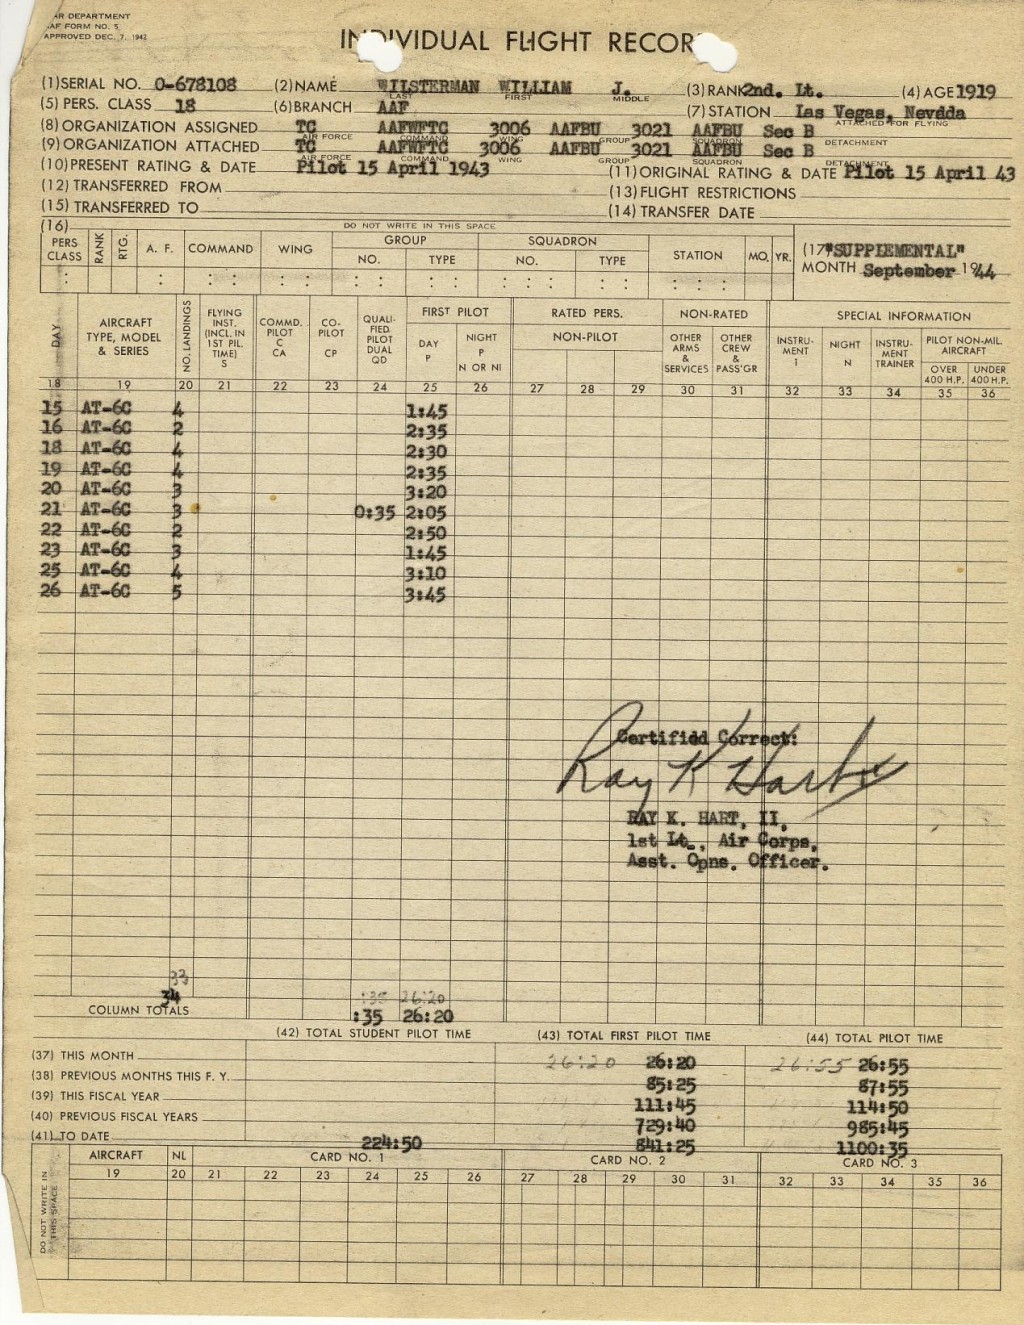 AR DEPARTMENT
AAF FORM NO. 5
APPROVED DEC. 7, 1942
INDIVIDUAL FLIGHT RECOR
(1) SERIAL NO. O-678108 (2) NAME WILSTERMAN WILLIAM J. (3) RANK 2nd. Lt. (4) AGE 1919
LAST FIRST MIDDLE
(5) PERS. CLASS 18 (6) BRANCH AAF (7) STATION Las Vegas, Nevada
(8) ORGANIZATION ASSIGNED TC AAFWFTC 3006 AAFBU 3021 AAFBU Sec B ATTACHED FOR FLYING
AIR FORCE COMMAND WING GROUP SQUADRON DETACHMENT
(9) ORGANIZATION ATTACHED TC AAFWFTC 3006 AAFBU 3021 AAFBU Sec B
AIR FORCE COMMAND WING GROUP SQUADRON DETACHMENT
(10) PRESENT RATING & DATE Pilot 15 April 1943 (11) ORIGINAL RATING & DATE Pilot 15 April 43
(12) TRANSFERRED FROM (13) FLIGHT RESTRICTIONS
(15) TRANSFERRED TO (14) TRANSFER DATE
(16) DO NOT WRITE IN THIS SPACE
PERS CLASS RANK RTG. A. F. COMMAND WING GROUP NO. TYPE SQUADRON NO. TYPE STATION MO. YR.
(17 "SUPPLEMENTAL"
MONTH September 1944
DAY AIRCRAFT TYPE, MODEL & SERIES NO. LANDINGS FLYING INST. (INCL. IN 1ST PIL. TIME) S COMMD. PILOT C CA CO-PILOT CP QUALI-FIED PILOT DUAL QD FIRST PILOT DAY P NIGHT P N OR NI RATED PERS. NON-PILOT NON-RATED OTHER ARMS & SERVICES OTHER CREW & PASS'GR SPECIAL INFORMATION INSTRU-MENT I NIGHT N INSTRU-MENT TRAINER PILOT NON-MIL. AIRCRAFT OVER 400 H.P. UNDER 400 H.P.
18 19 20 21 22 23 24 25 26 27 28 29 30 31 32 33 34 35 36
15 AT-6C 4 1:45
16 AT-6C 2 2:35
18 AT-6C 4 2:30
19 AT-6C 4 2:35
20 AT-6C 3 3:20
21 AT-6C 3 0:35 2:05
22 AT-6C 2 2:50
23 AT-6C 3 1:45
25 AT-6C 4 3:10
26 AT-6C 5 3:45
Certified Correct:
Ray K Hart
RAY K. HART, II,
1st Lt., Air Corps,
Asst. Opns. Officer.
33
34 :35 26:20
COLUMN TOTALS :35 26:20
(42) TOTAL STUDENT PILOT TIME (43) TOTAL FIRST PILOT TIME (44) TOTAL PILOT TIME
(37) THIS MONTH 26:20 26:20 26:55 26:55
(38) PREVIOUS MONTHS THIS F. Y. 85:25 87:55
(39) THIS FISCAL YEAR 111:45 114:50
(40) PREVIOUS FISCAL YEARS 729:40 985:45
(41) TO DATE 224:50 841:25 1100:35
DO NOT WRITE IN THIS SPACE
AIRCRAFT NL CARD NO. 1 CARD NO. 2 CARD NO. 3
19 20 21 22 23 24 25 26 27 28 29 30 31 32 33 34 35 36